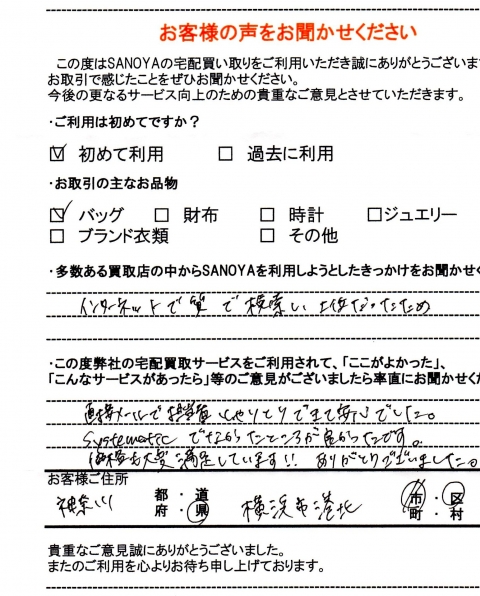 お客様の声をお聞かせください
この度はSANOYAの宅配買い取りをご利用いただき誠にありがとうございま
お取引で感じたことをぜひお聞かせください。
今後の更なるサービス向上のための貴重なご意見とさせていただきます。
・ご利用は初めてですか？
☑ 初めて利用 □ 過去に利用
・お取引の主なお品物
☑ バッグ □ 財布 □ 時計 □ジュエリー
□ ブランド衣類 □ その他
・多数ある買取店の中からSANOYAを利用しようとしたきっかけをお聞かせく
インターネットで質で検索し上位だったため
・この度弊社の宅配買取サービスをご利用されて、「ここがよかった」、
「こんなサービスがあったら」等のご意見がございましたら率直にお聞かせくだ
直接メールで担当者とやりとりできて安心でした。
systematic でなかったところが良かったです。
価格も大変満足しています!! ありがとうございました。
お客様ご住所
神奈川 都・道 府・県 横浜市港北 市・区 町・村
貴重なご意見誠にありがとうございました。
またのご利用を心よりお待ち申し上げております。